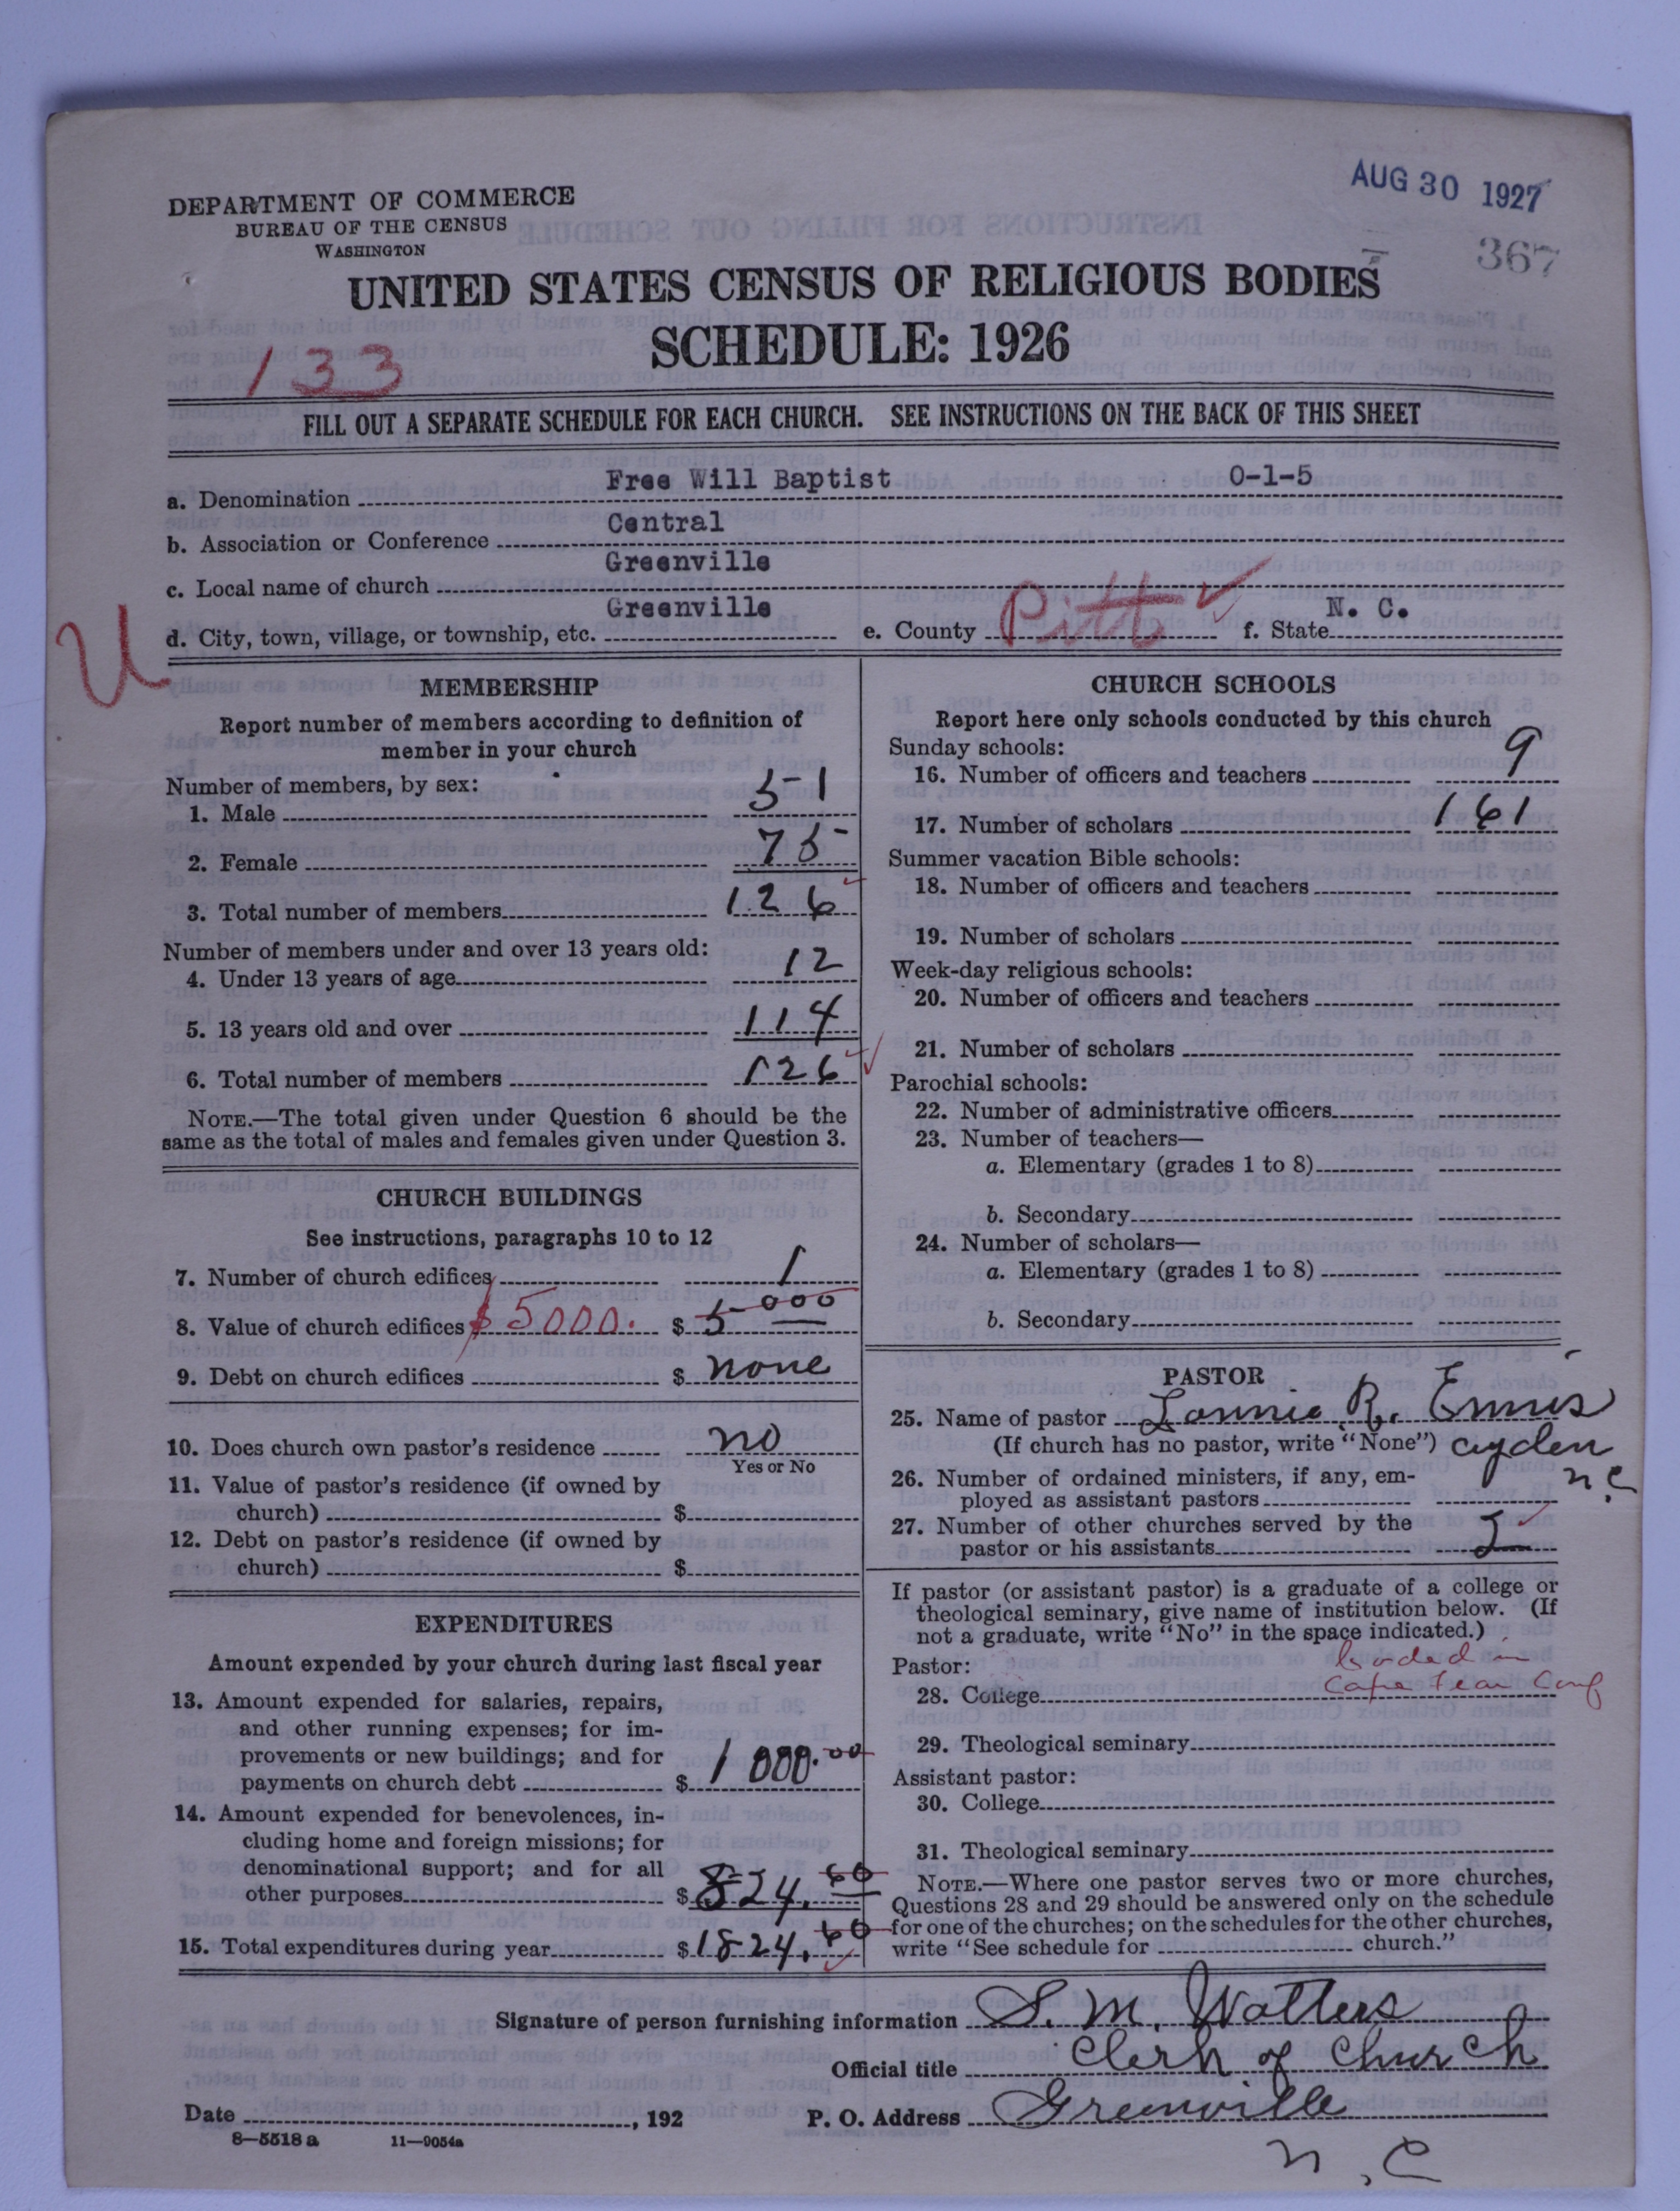 AUG 30 1927
367
DEPARTMENT OF COMMERCE
BUREAU OF THE CENSUS
WASHINGTON
UNITED STATES CENSUS OF RELIGIOUS BODIES
SCHEDULE: 1926
133
FILL OUT A SEPARATE SCHEDULE FOR EACH CHURCH. SEE INSTRUCTIONS ON THE BACK OF THIS SHEET
a. Denomination Free Will Baptist 0-1-5
b. Association or Conference Central
c. Local name of church Greenville
d. City, town, village, or township, etc. Greenville e. County Pitt ✓ f. State N. C.
U
MEMBERSHIP
Report number of members according to definition of
member in your church
Number of members, by sex:
1. Male 51
2. Female 75
3. Total number of members 126
Number of members under and over 13 years old:
4. Under 13 years of age 12
5. 13 years old and over 114
6. Total number of members 126
NOTE.—The total given under Question 6 should be the
same as the total of males and females given under Question 3.
CHURCH BUILDINGS
See instructions, paragraphs 10 to 12
7. Number of church edifices 1
8. Value of church edifices $5000. $ 5000
9. Debt on church edifices $ none
10. Does church own pastor's residence no
Yes or No
11. Value of pastor's residence (if owned by
church) $
12. Debt on pastor's residence (if owned by
church) $
EXPENDITURES
Amount expended by your church during last fiscal year
13. Amount expended for salaries, repairs,
and other running expenses; for im-
provements or new buildings; and for
payments on church debt $ 1000.00
14. Amount expended for benevolences, in-
cluding home and foreign missions; for
denominational support; and for all
other purposes $ 824.60
15. Total expenditures during year $ 1824.60
CHURCH SCHOOLS
Report here only schools conducted by this church
Sunday schools:
16. Number of officers and teachers 9
17. Number of scholars 161
Summer vacation Bible schools:
18. Number of officers and teachers
19. Number of scholars
Week-day religious schools:
20. Number of officers and teachers
21. Number of scholars
Parochial schools:
22. Number of administrative officers
23. Number of teachers—
a. Elementary (grades 1 to 8)
b. Secondary
24. Number of scholars—
a. Elementary (grades 1 to 8)
b. Secondary
PASTOR
25. Name of pastor Lonnie R. Ennis
(If church has no pastor, write "None") ayden
n.c
26. Number of ordained ministers, if any, em-
ployed as assistant pastors
27. Number of other churches served by the
pastor or his assistants
If pastor (or assistant pastor) is a graduate of a college or
theological seminary, give name of institution below. (If
not a graduate, write "No" in the space indicated.)
Pastor:
coded in
28. College Cape Fear Conf
29. Theological seminary
Assistant pastor:
30. College
31. Theological seminary
NOTE.—Where one pastor serves two or more churches,
Questions 28 and 29 should be answered only on the schedule
for one of the churches; on the schedules for the other churches,
write "See schedule for church."
Signature of person furnishing information S. M. Walters
Official title Clerk of Church
Date , 192 P. O. Address Greenville
n.c
8—5518 a 11—9054a